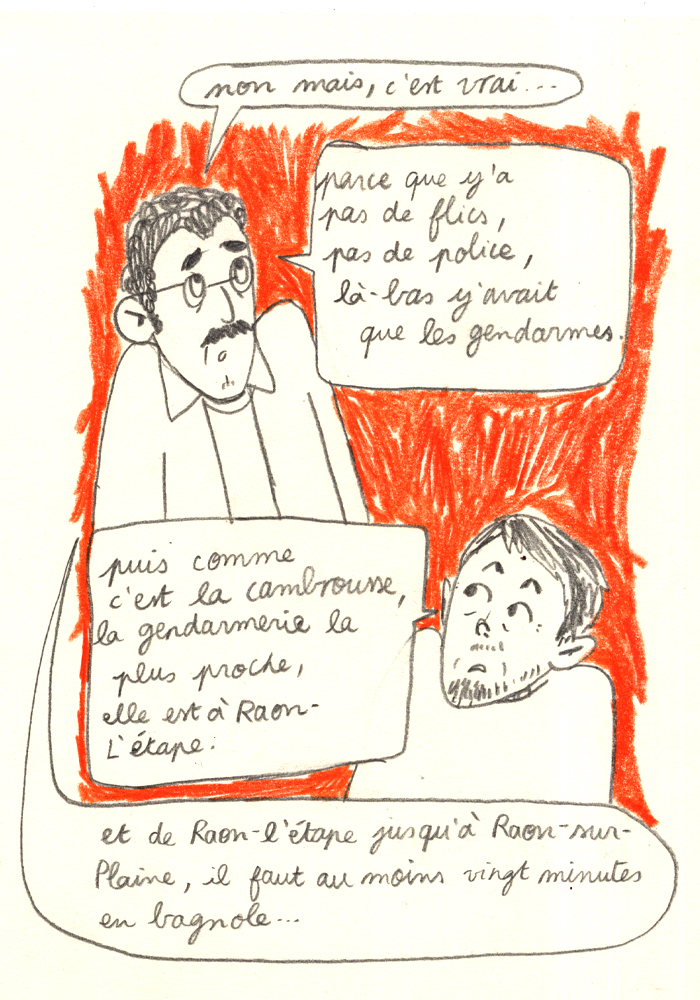 non mais, c'est vrai...
parce que y'a
pas de flics,
pas de police,
là-bas y'avait
que les gendarmes.
puis comme
c'est la cambrousse,
la gendarmerie la
plus proche,
elle est à Raon-
L'étape.
et de Raon-l'étape jusqu'à Raon-sur-
Plaine, il faut au moins vingt minutes
en bagnole...